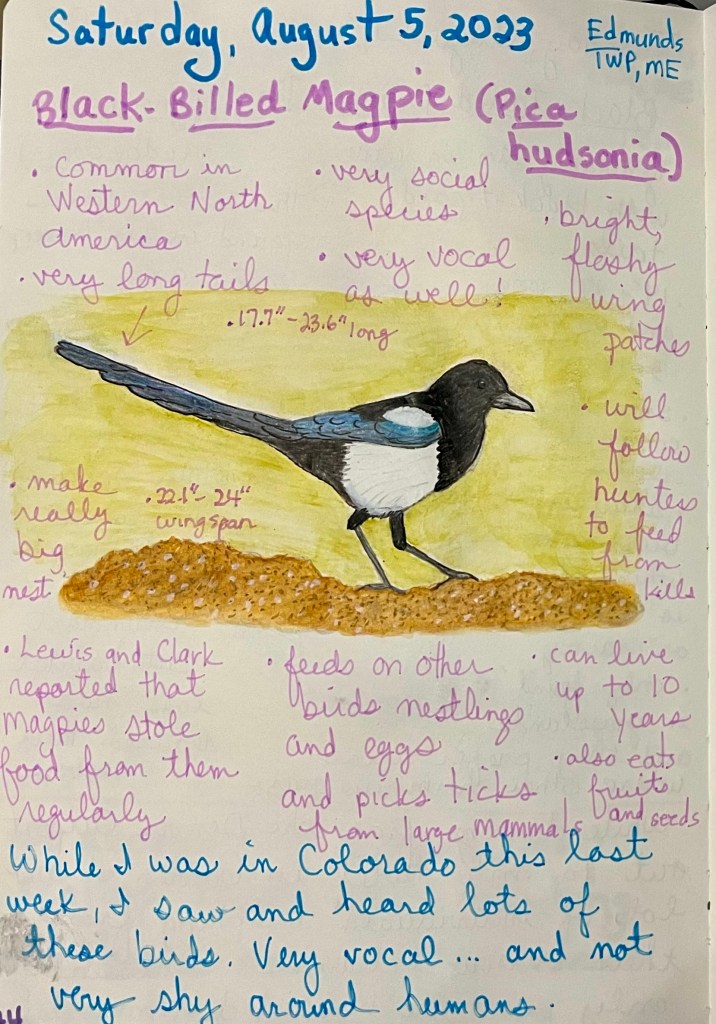 Saturday, August 5, 2023
Edmunds
TWP, ME
Black-Billed Magpie (Pica
hudsonia)
• Common in
Western North
America
• very long tails
• very social
species
• very vocal
as well!
• bright,
flashy
wing
patches
• 17.7"-23.6" long
• will
follow
hunters
to feed
from
kills
• make
really
big
nest
• 22.1"-24"
wingspan
• Lewis and Clark
reported that
magpies stole
food from them
regularly
• feeds on other
birds nestlings
and eggs
and picks ticks
from large mammals
• can live
up to 10
years
• also eats
fruits
and seeds
While I was in Colorado this last
week, I saw and heard lots of
these birds. Very vocal... and not
very shy around humans.